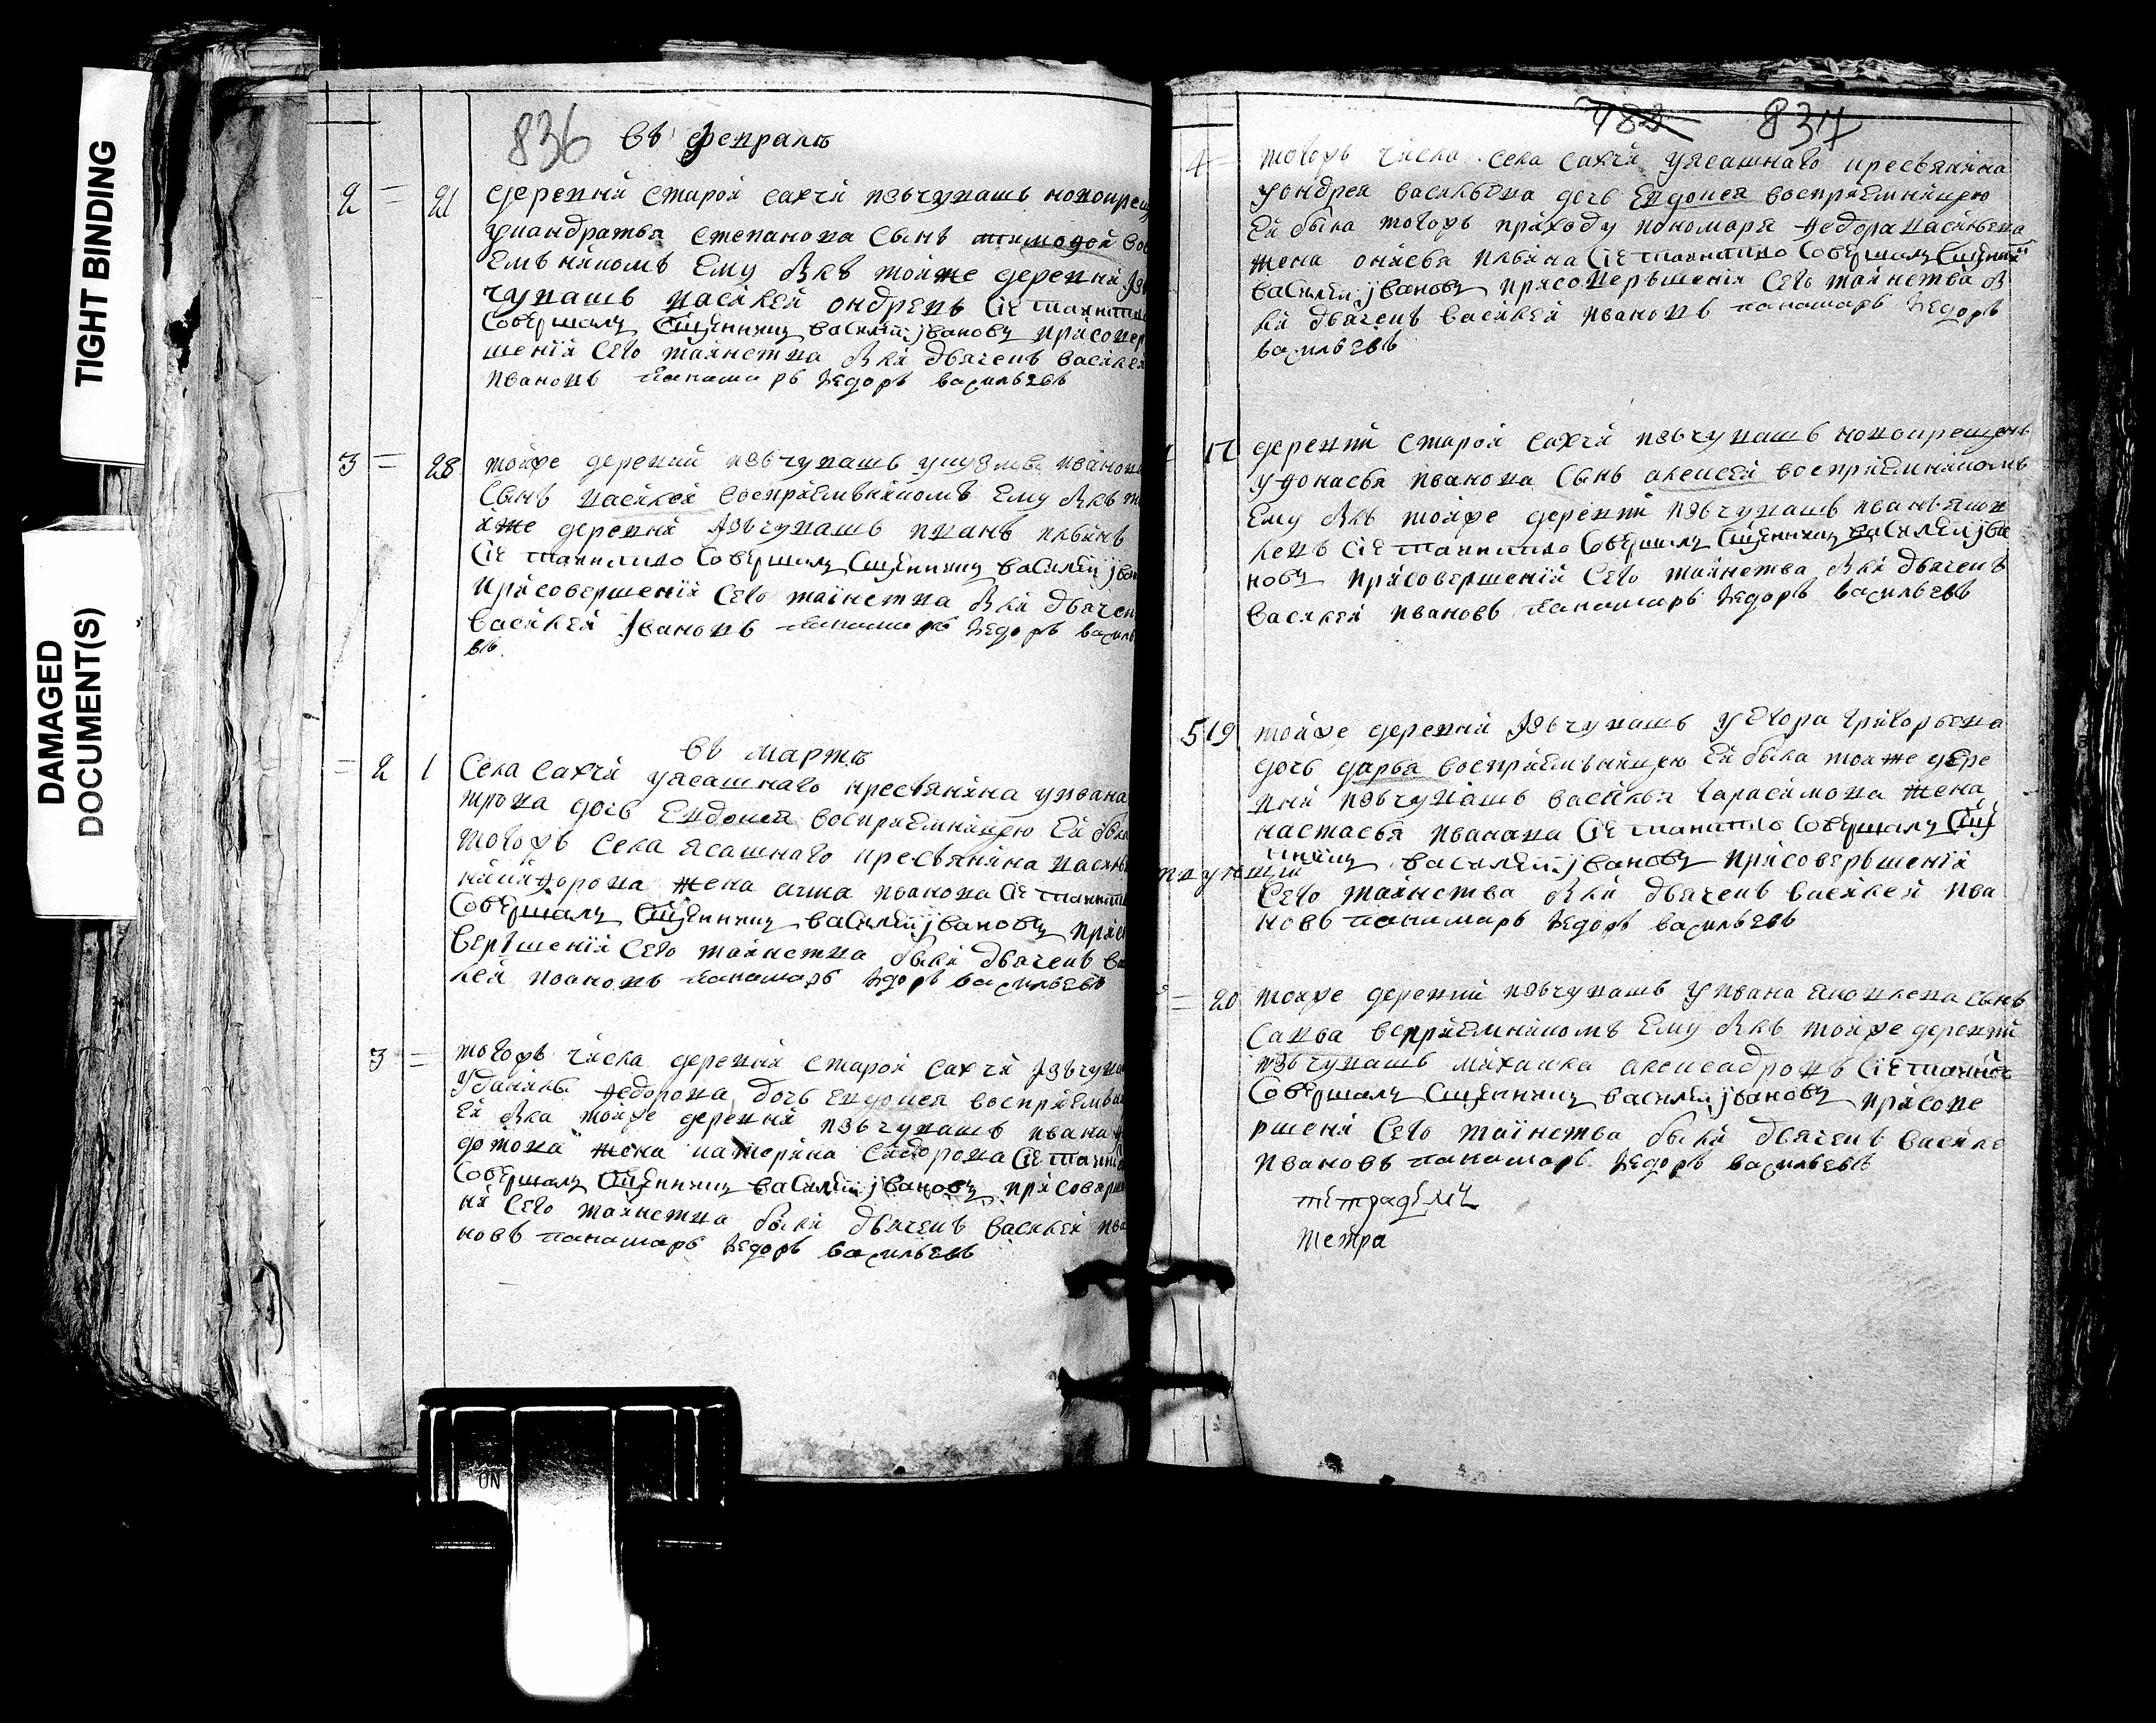 TIGHT BINDING
DAMAGED
DOCUMENT(S)
836 въ февралѣ
2 = 21 деревни старой сахчи изъчувашъ новокрещ
укандратья степанова сынъ тимофей вос
емъникомъ ему былъ тойже деревни изъ
чувашъ василей ондревъ сіе таинство
совершалъ священникъ василей ивановъ присовер
шеніи сего таинства были дьячекъ василей
ивановъ панамарь федоръ васильевъ
3 = 28 тойже деревни изъчувашъ иванова
сынъ василей воспріемъникомъ ему былъ т
йже деревни изъчувашъ иванъ ильинъ
сіе таинство совершалъ священникъ василей ива
присовершеніи сего таинства были дьячек
василей ивановъ панамарь федоръ василь
въ
въ мартѣ
= 2 1 села сахчи уясашнаго крестьянина уивана
трова дочь евдокея воспріемницею ей была
тогожъ села ясашнаго крестьянина василь
жена анна иванова сіе таинство
совершалъ священникъ василей ивановъ присо
вершеніи сего таинства были дьячекъ ва
лей ивановъ панамарь федоръ васильевъ
3 = тогожъ числа деревни старой сахчи изъчува
уданилы федорова дочь евдокея воспріемъни
ей была тойже деревни изъчувашъ ивана
дотова жена катерина сидорова сіе таинст
совершалъ священникъ василей ивановъ присоверш
ни сего таинства были дьячекъ василей ива
новъ панамарь федоръ васильевъ
783 837
4 = тогожъ числа села сахчи уясашнаго крестьянина
уондрея васильева дочь евдокея воспріемницею
ей была тогожъ приходу пономаря федора васильева
жена ильина сіе таинство совершалъ священникъ
василей ивановъ присовершенія сего таинства бы
ли дьячекъ василей ивановъ панамарь федоръ
васильевъ
17 деревни старой сахчи изъчувашъ новокрещенъ
уафонасья иванова сынъ алексей воспріемникомъ
ему былъ тойже деревни изъчувашъ иванъ яков
левъ сіе таинство совершалъ священникъ василей ива
новъ присовершеніи сего таинства были дьячекъ
василей ивановъ панамарь федоръ васильевъ
5 19 тойже деревни изъчувашъ уегора григорьева
дочь дарья воспріемъницею ей была тойже дере
вни изъчувашъ василья гарасимова жена
настасья иванова сіе таинство совершалъ свящ
енникъ василей ивановъ присовершеніи
сего таинства были дьячекъ василей ива
новъ панамарь федоръ васильевъ
= 20 тойже деревни изъчувашъ уивана яковлева сынъ
савва вспріемникомъ ему былъ тойже деревни
изъчувашъ михаила алексадровъ сіе таинство
совершалъ священникъ василей ивановъ присове
ршени сего таинства были дьячекъ василе
ивановъ панамарь федоръ васильевъ
тетра
ON